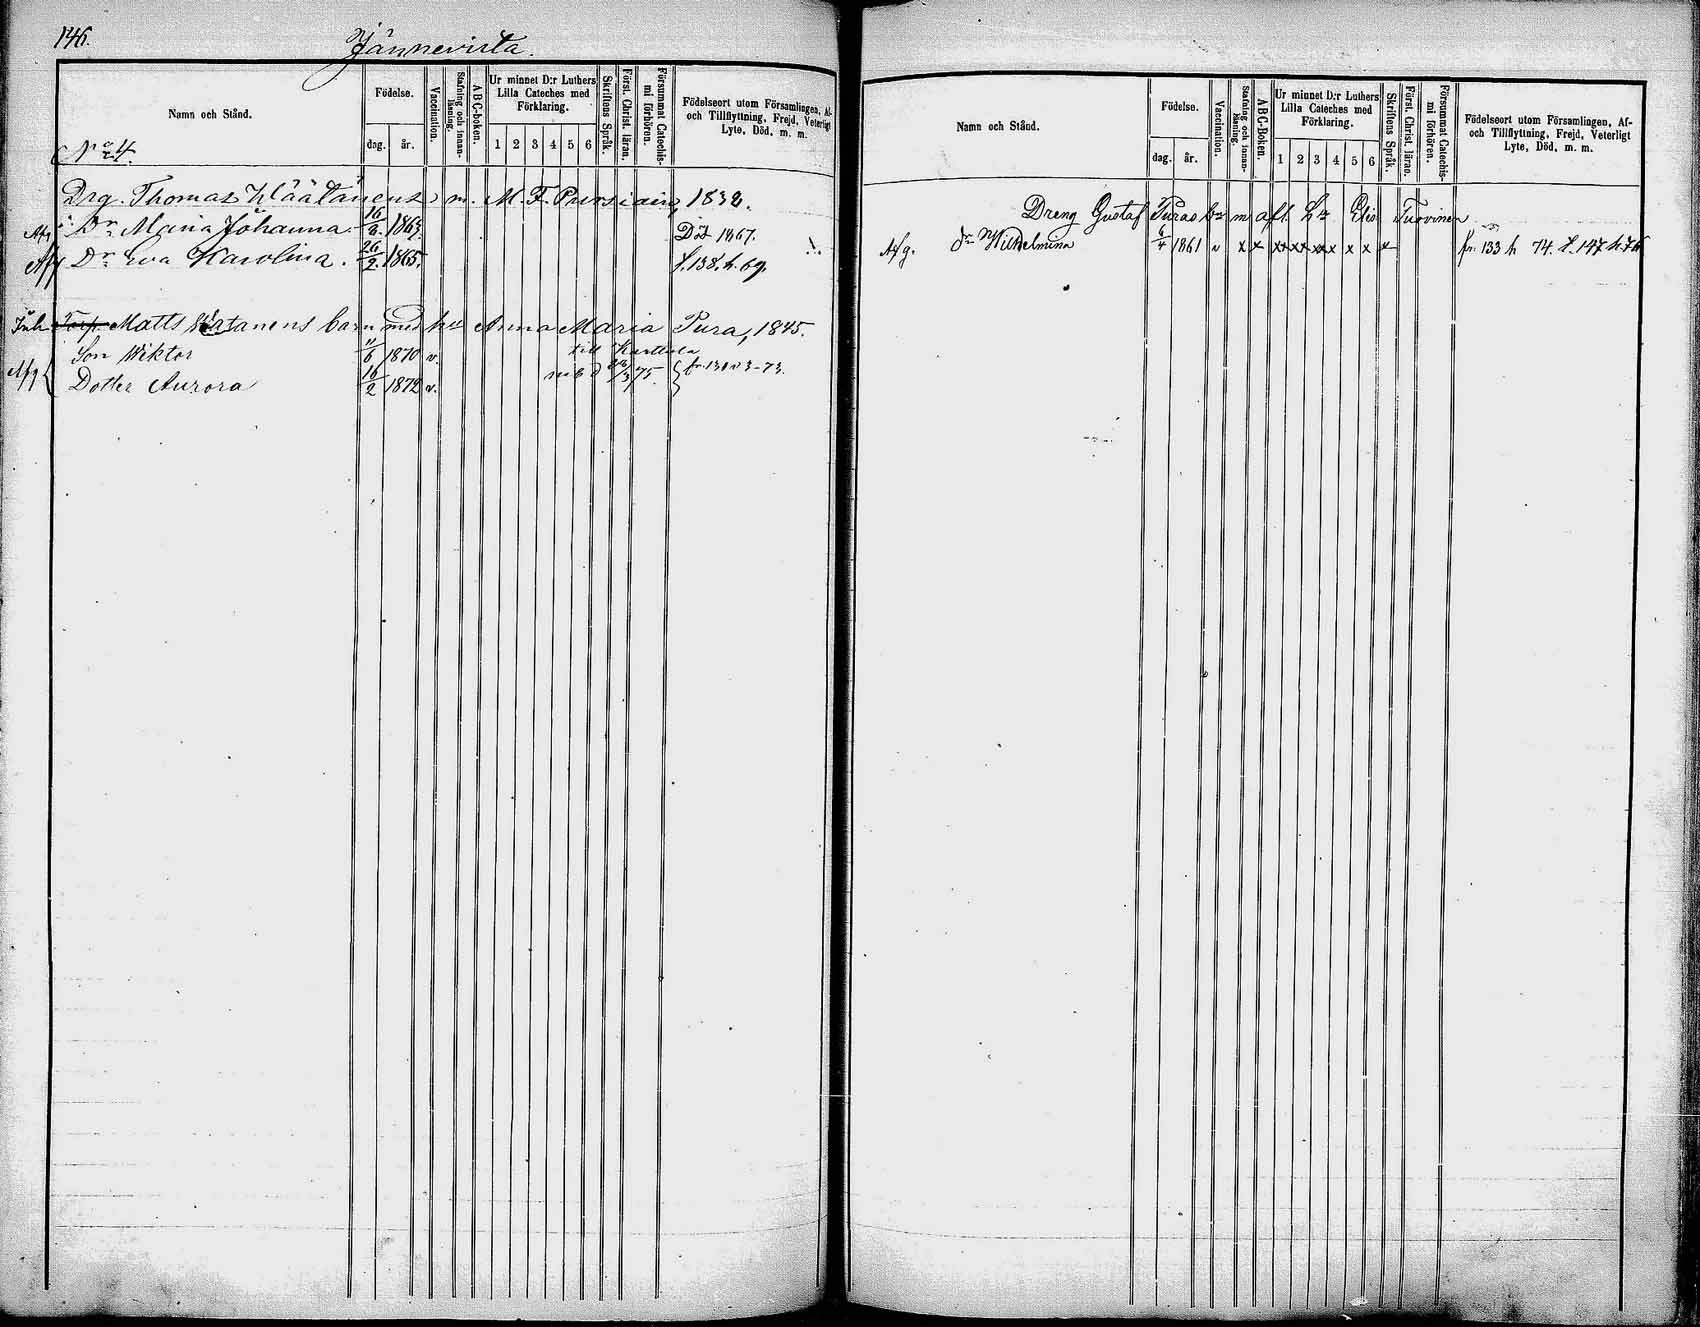 146.
Jännevirta.
Namn och Stånd.
Födelse.
dag. år.
Vaccination.
Stafning och innan-läsning.
ABC-boken.
Ur minnet D:r Luthers Lilla Cateches med Förklaring.
1 2 3 4 5 6
Skriftens Språk.
Först. Christ. läran.
Försummat Catechis-mi förhören.
Födelseort utom Församlingen, Af-
och Tillflyttning, Frejd, Veterligt
Lyte, Död, m. m.
No 4.
Drg. Thomas m. M. F. Pursiain, 1838.
Dr Maria Johanna 16/2 1863 Död 1867.
Afg Dr Eva Karolina. 26/2 1865. f. 138. h. 69.
Torp. Matts barn med hu Anna Maria Pura, 1845.
Son Wiktor 11/6 1870 v. till Karttula
Afg { Dotter Aurora 16/2 1872 v. 3/75. } fr. 130 3-73.
Namn och Stånd.
Födelse.
dag. år.
Vaccination.
Stafning och innan-läsning.
ABC-Boken.
Ur minnet D:r Luthers Lilla Cateches med Förklaring.
1 2 3 4 5 6
Skriftens Språk.
Först. Christ. läran.
Försummat Catechis-mi förhören.
Födelseort utom Församlingen, Af-
och Tillflyttning, Frejd, Veterligt
Lyte, Död, m. m.
Dreng Gustaf Puras m afl. Elis Turvinen
Afg. dr Wilhelmina 6/4 1861 v x x xx xx xx x x x fr. 133 h 74. t. 147 h. 76